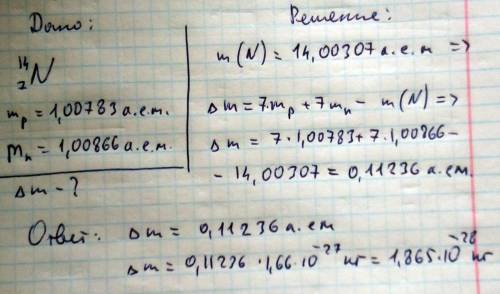 Дано:
Решение:
¹⁴₇N
m_p = 1,00783 а.е.м.
m_n = 1,00866 а.е.м.
Δm - ?
m(N) = 14,00307 а.е.м =>
Δm = 7·m_p + 7m_n - m(N) =>
Δm = 7·1,00783 + 7·1,00866 -
- 14,00307 = 0,11236 а.ем.
Ответ: Δm = 0,11236 а.ем
Δm = 0,11236 · 1,66·10⁻²⁷ кг = 1,865·10⁻²⁸ кг